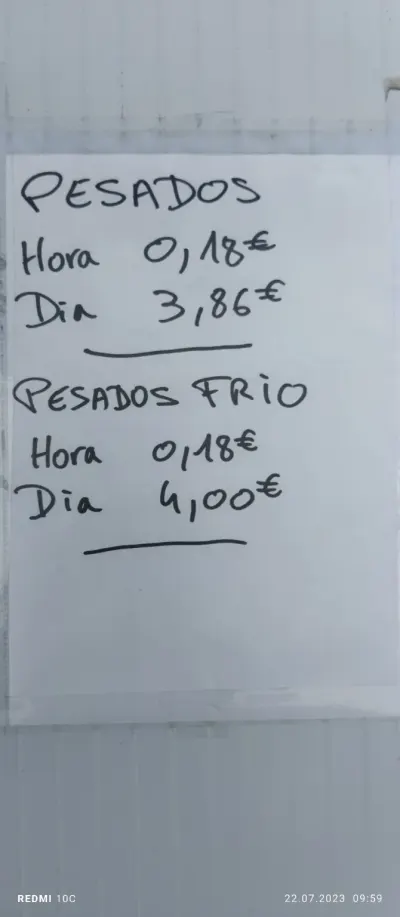 PESADOS
Hora 0,18€
Dia 3,86€
PESADOS FRiO
Hora 0,18€
Dia 4,00€
REDMI 10C 22.07.2023 09:59